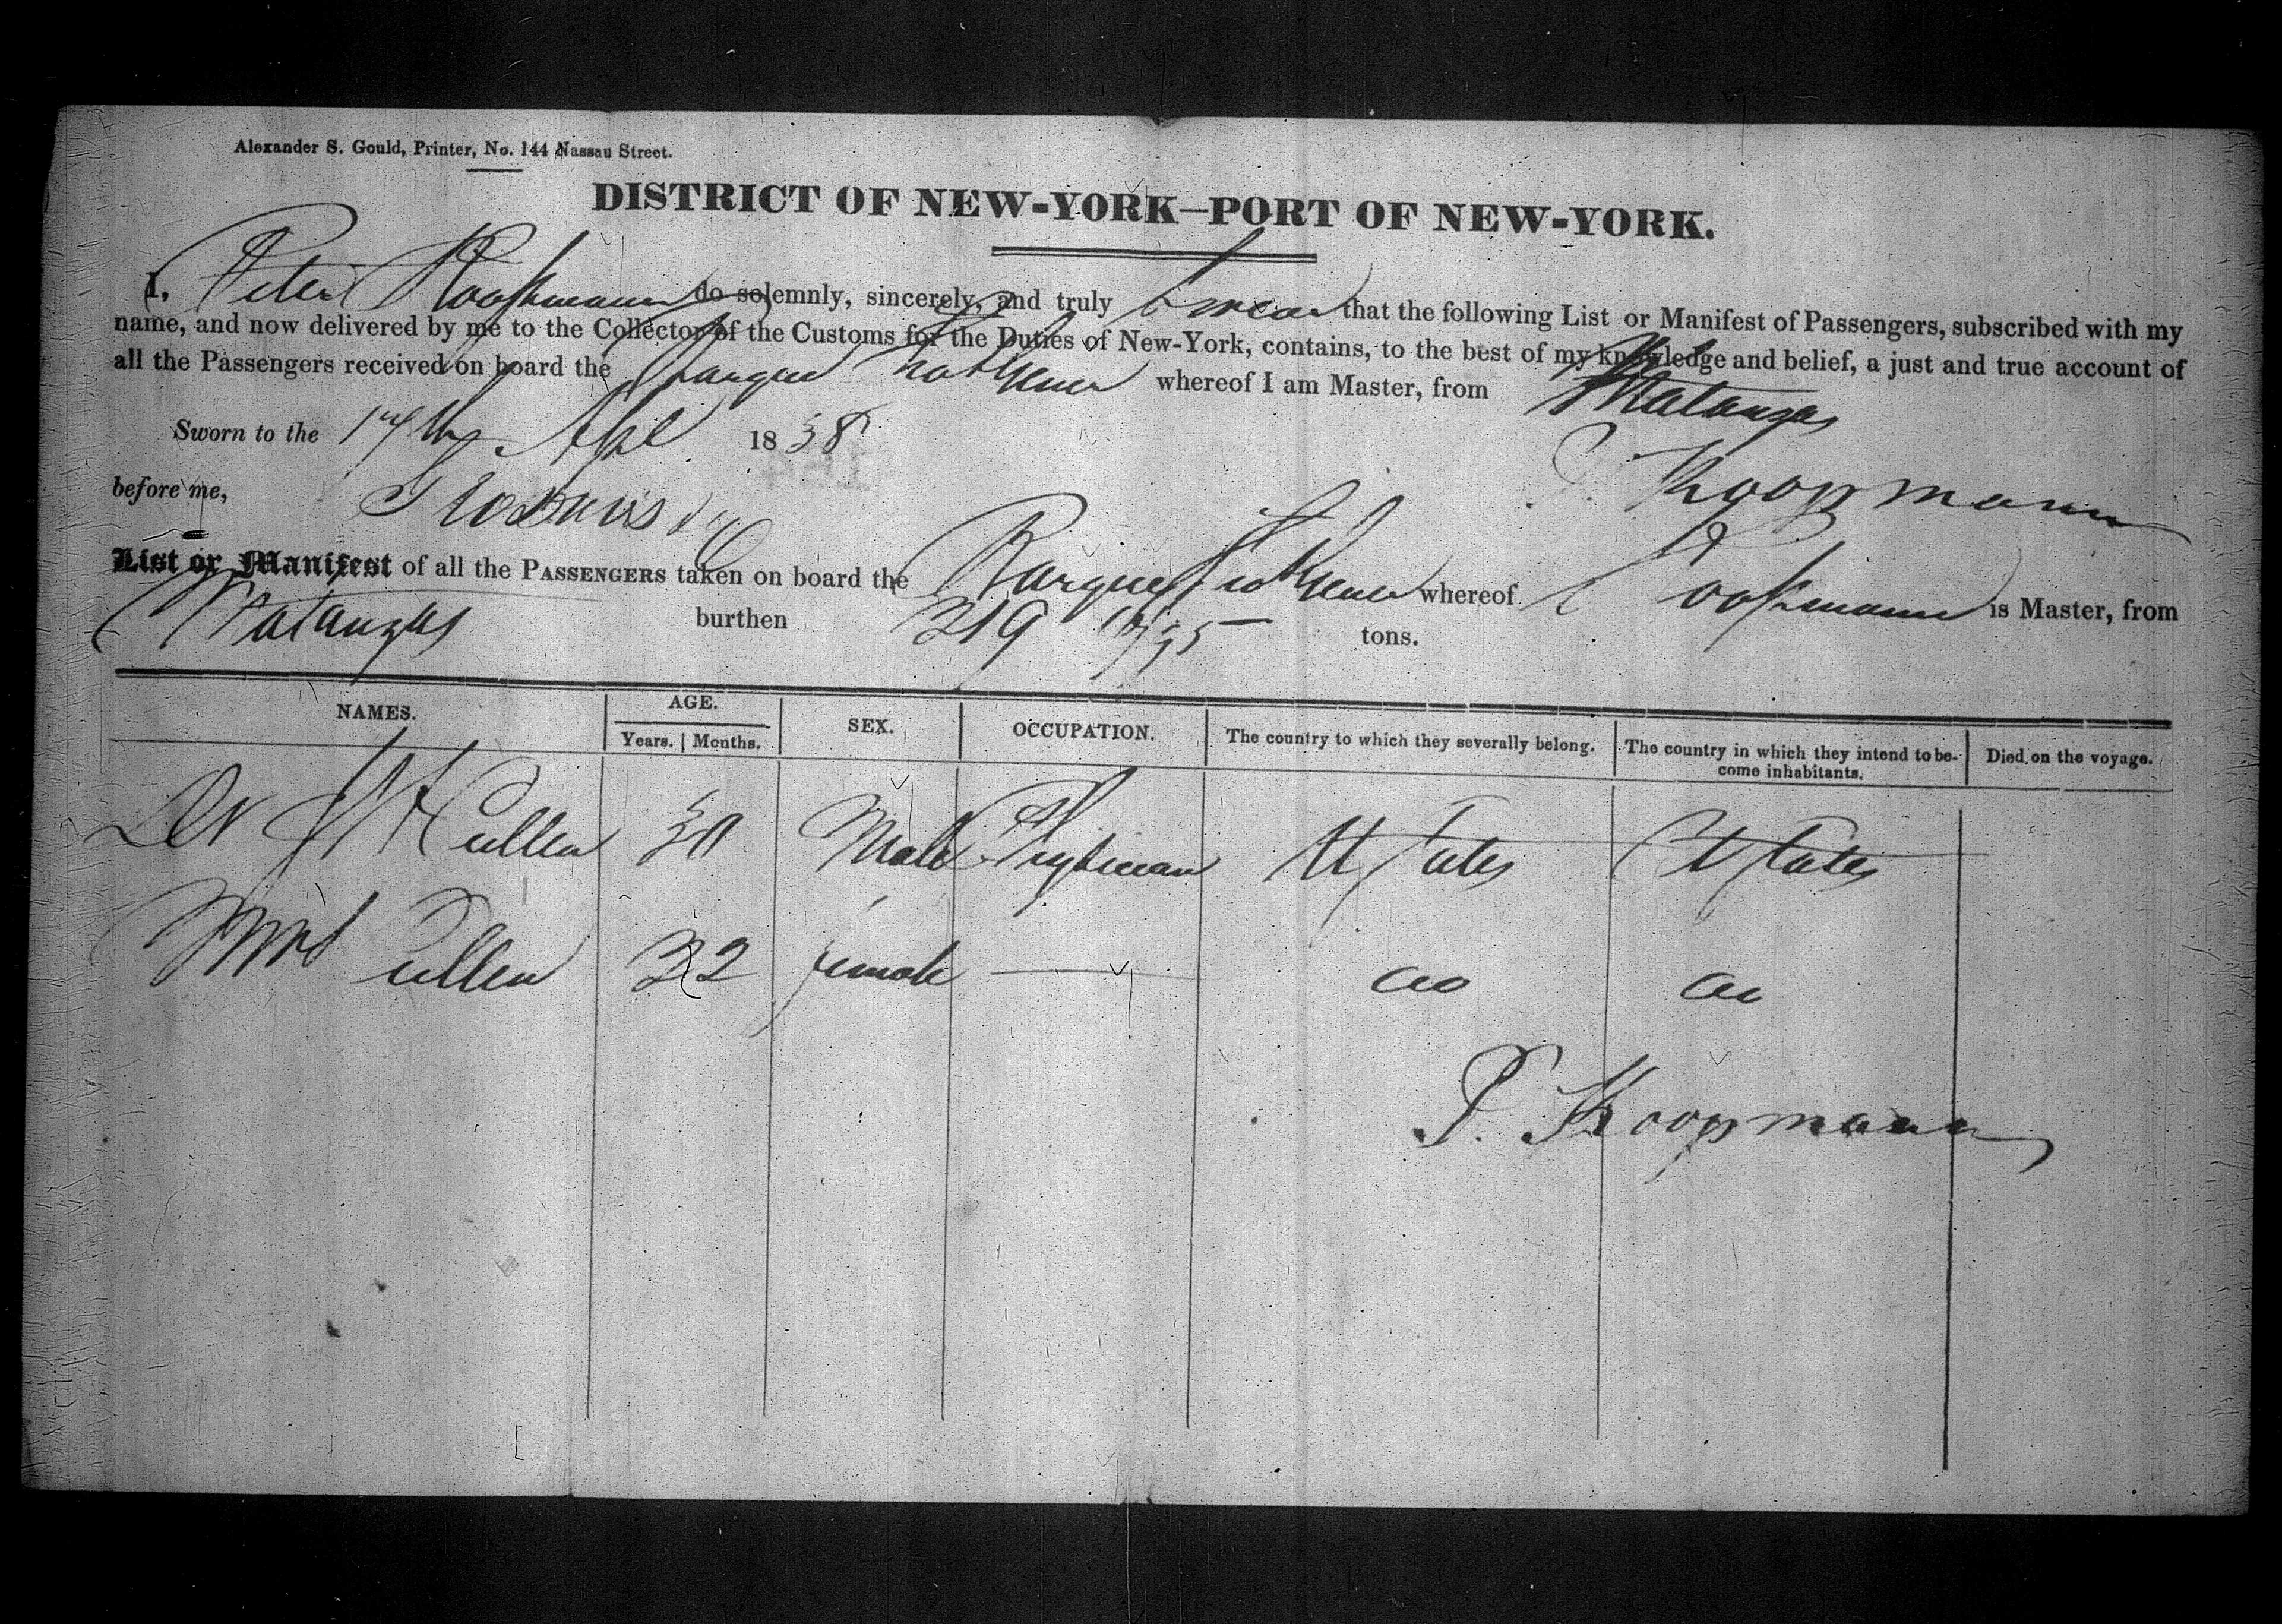 Alexander S. Gould, Printer, No. 144 Nassau Street.
DISTRICT OF NEW-YORK—PORT OF NEW-YORK.
I, Peter Koopmann do solemnly, sincerely, and truly Swear that the following List or Manifest of Passengers, subscribed with my
name, and now delivered by me to the Collector of the Customs for the Duties of New-York, contains, to the best of my knowledge and belief, a just and true account of
all the Passengers received on board the Barque whereof I am Master, from Matanzas
Sworn to the 17th Apl 1838
P. Koopmann
before me,
List or Manifest of all the PASSENGERS taken on board the Barque whereof Koopmann is Master, from
Matanzas burthen 319 tons.
NAMES. AGE. SEX. OCCUPATION. The country to which they severally belong. The country in which they intend to become inhabitants. Died on the voyage.
Years. Months.
Dr Cullen 30 Male Physician U States U States
Mrs Cullen 32 female — do do
P. Koopmann